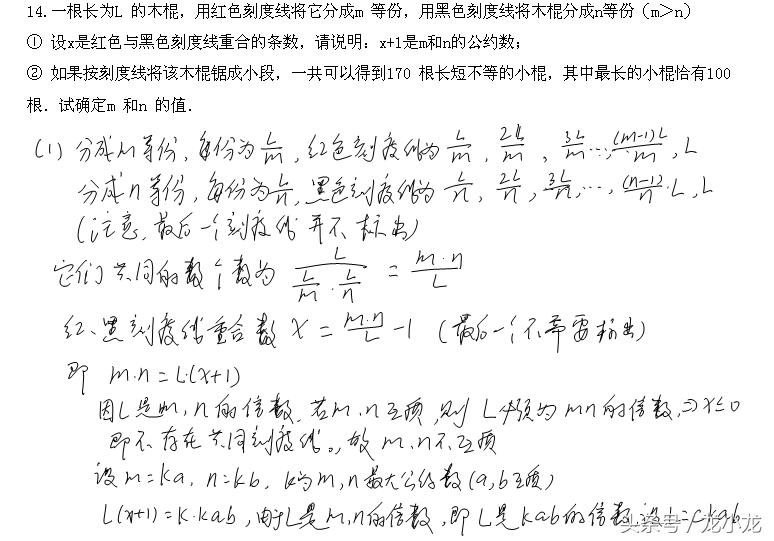 14.一根长为L 的木棍，用红色刻度线将它分成m 等份，用黑色刻度线将木棍分成n等份（m＞n）
① 设x是红色与黑色刻度线重合的条数，请说明：x+1是m和n的公约数；
② 如果按刻度线将该木棍锯成小段，一共可以得到170 根长短不等的小棍，其中最长的小棍恰有100
根．试确定m 和n 的值．
(1) 分成m等份，每份为L/m，红色刻度线为 L/m，2L/m，3L/m…，(m-1)L/m，L
分成n等份，每份为L/n，黑色刻度线为 L/n，2L/n，3L/n，…，(n-1)/n·L，L
(注意，最后一个刻度线并不标出)
它们共同的数个数为 L/(L/m·L/n) = m·n/L
红、黑刻度线重合数 x = m·n/L -1 (最后一个不需要标出)
即 m·n = L·(x+1)
因L是m，n的倍数，若m、n互质，则 L必须为mn的倍数，⇒x≤0
即不存在共同刻度线。，故m、n不互质
设m=ka，n=kb，k为m，n最大公约数(a，b互质)
L(x+1)=k·kab，由于L是m，n的倍数，即L是kab的倍数 设L=c·kab
头条号/龙小龙